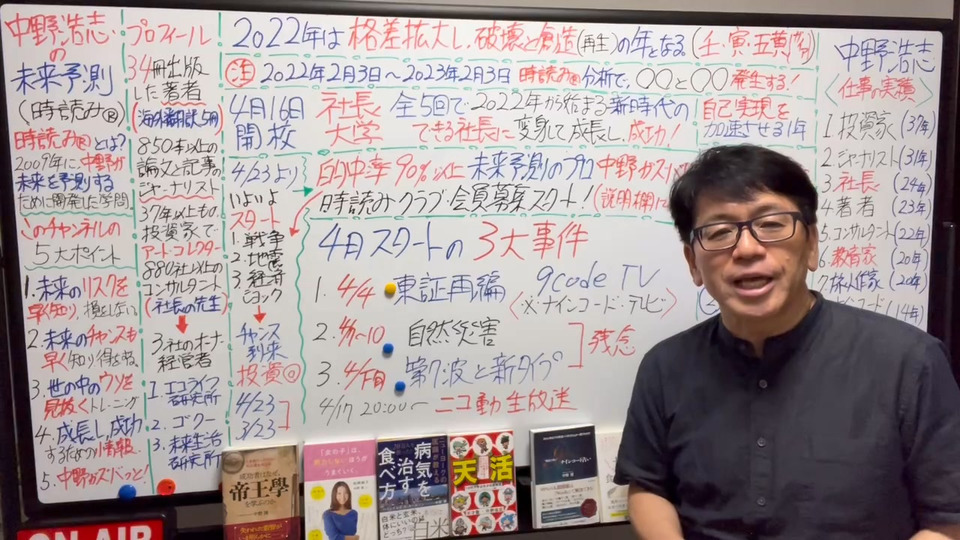 中野浩志
の
未来予測
(時読み®)
時読み®とは?
2009年に、中野が
未来を予測する
ために開発した学問
このチャンネルの
5大ポイント
1.未来のリスクを
早く知り、損をしない
2.未来のチャンスも
早く知り得を
3.世の中のウソを
見抜くトレーニング
4.成長し、成功
するための情報
5.中野がズバッと!
プロフィール
34冊出版
した著者
(海外翻訳5冊)
850本以上の
論文と記事の
ジャーナリスト
37年以上もの
投資家で
アート・コレクター
880社以上の
コンサルタント
(社長の先生)
3社のオーナー
経営者
1.エコライフ
研究所
2.ゴクー
3.未来生活
研究所
2022年は格差拡大し、破壊と創造(再生)の年となる(壬・寅・五黄
注 2022年2月3日~2023年2月3日 時読み®分析で、〇〇と〇〇発生する!
4月16日
開校
社長
大学
全5回で2022年から始まる新時代の
できる社長に変身して成長し、成功!
自己実現を
加速させる1年
4/23より
いよいよ
スタート
1.戦争
2.地震
3.経済
ショック
チャンス
到来
投資
4/23
3/23
的中率90%以上 未来予測のプロ 中野がズバ
時読みクラブ会員募集スタート!(説明欄に
4月スタートの3大事件
9code TV
〈※ナインコード・テレビ〉
1. 4/4 東証再編
2. 4/1~10 自然災害
3. 4/下旬 第7波と新タイプ
残念
4/17 20:00~ ニコ動生放送
中野浩志
〈仕事の実績〉
1 投資家(37年)
2.ジャーナリスト(31年)
3.社長(24年)
4 著者(23年)
5.コンサルタント(22年)
6.教育家(20年)
作家(20年)
コード(14年)
帝王學
病気を
治す
食べ方
天活
ナインコード占い
ON AIR